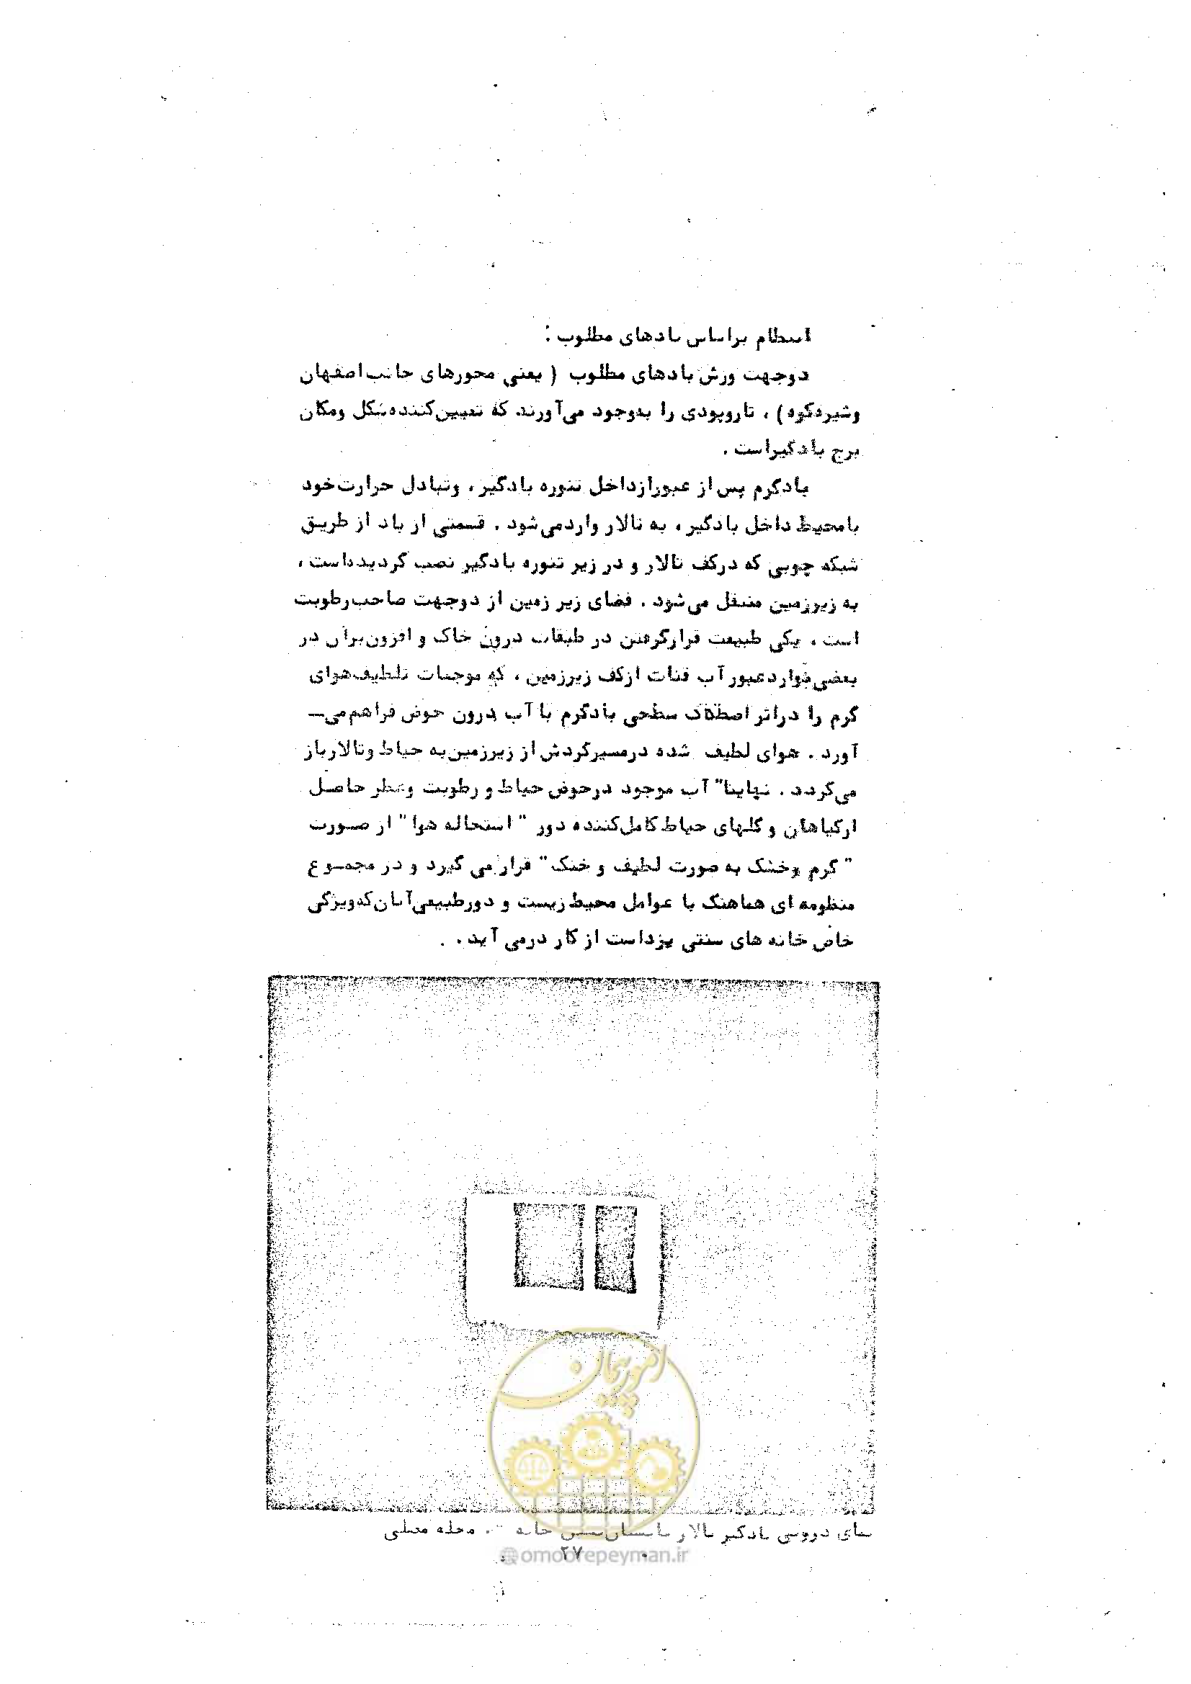 انتظام براساس بادهای مطلوب :
دوجهت وزش بادهای مطلوب ( یعنی محورهای جانب اصفهان
وشیرکوه ) ، تاروپودی را بوجود می‌آورند که تعیین‌کننده شکل ومکان
برج بادگیراست .
بادگرم پس از عبورازداخل تنوره بادگیر ، وتبادل حرارت خود
بامحیط داخل بادگیر ، به تالار واردمی‌شود . قسمتی از باد از طریق
شبکه چوبی که درکف تالار و در زیر تنوره بادگیر نصب گردیده‌است ،
به زیرزمین منتقل می‌شود . فضای زیر زمین از دوجهت صاحب رطوبت
است ، یکی طبیعت قرارگرفتن در طبقات درون خاک و افزون‌برآن در
بعضی موارد عبور آب قنات ازکف زیرزمین ، که موجبات تلطیف هوای
گرم را دراثر اصطکاک سطحی بادگرم با آب درون حوض فراهم می‌ـ
آورد . هوای لطیف شده درمسیرگردش از زیرزمین به حیاط وتالارباز
می‌گردد . نهایتا" آب موجود درحوض حیاط و رطوبت وعطر حاصل
ازگیاهان و گلهای حیاط کامل‌کننده دور " استحاله هوا " از صورت
" گرم وخشک به صورت لطیف و خنک" قرار می گیرد و در مجموع
منظومه ای هماهنگ با عوامل محیط زیست و دورطبیعی آنان که ویژگی
خاص خانه های سنتی یزداست از کار درمی آید .
نمای درونی بادگیر تالار تابستان‌نشین خانه محله مصلی
۲۷
امور پیمان
@omoorepeyman.ir